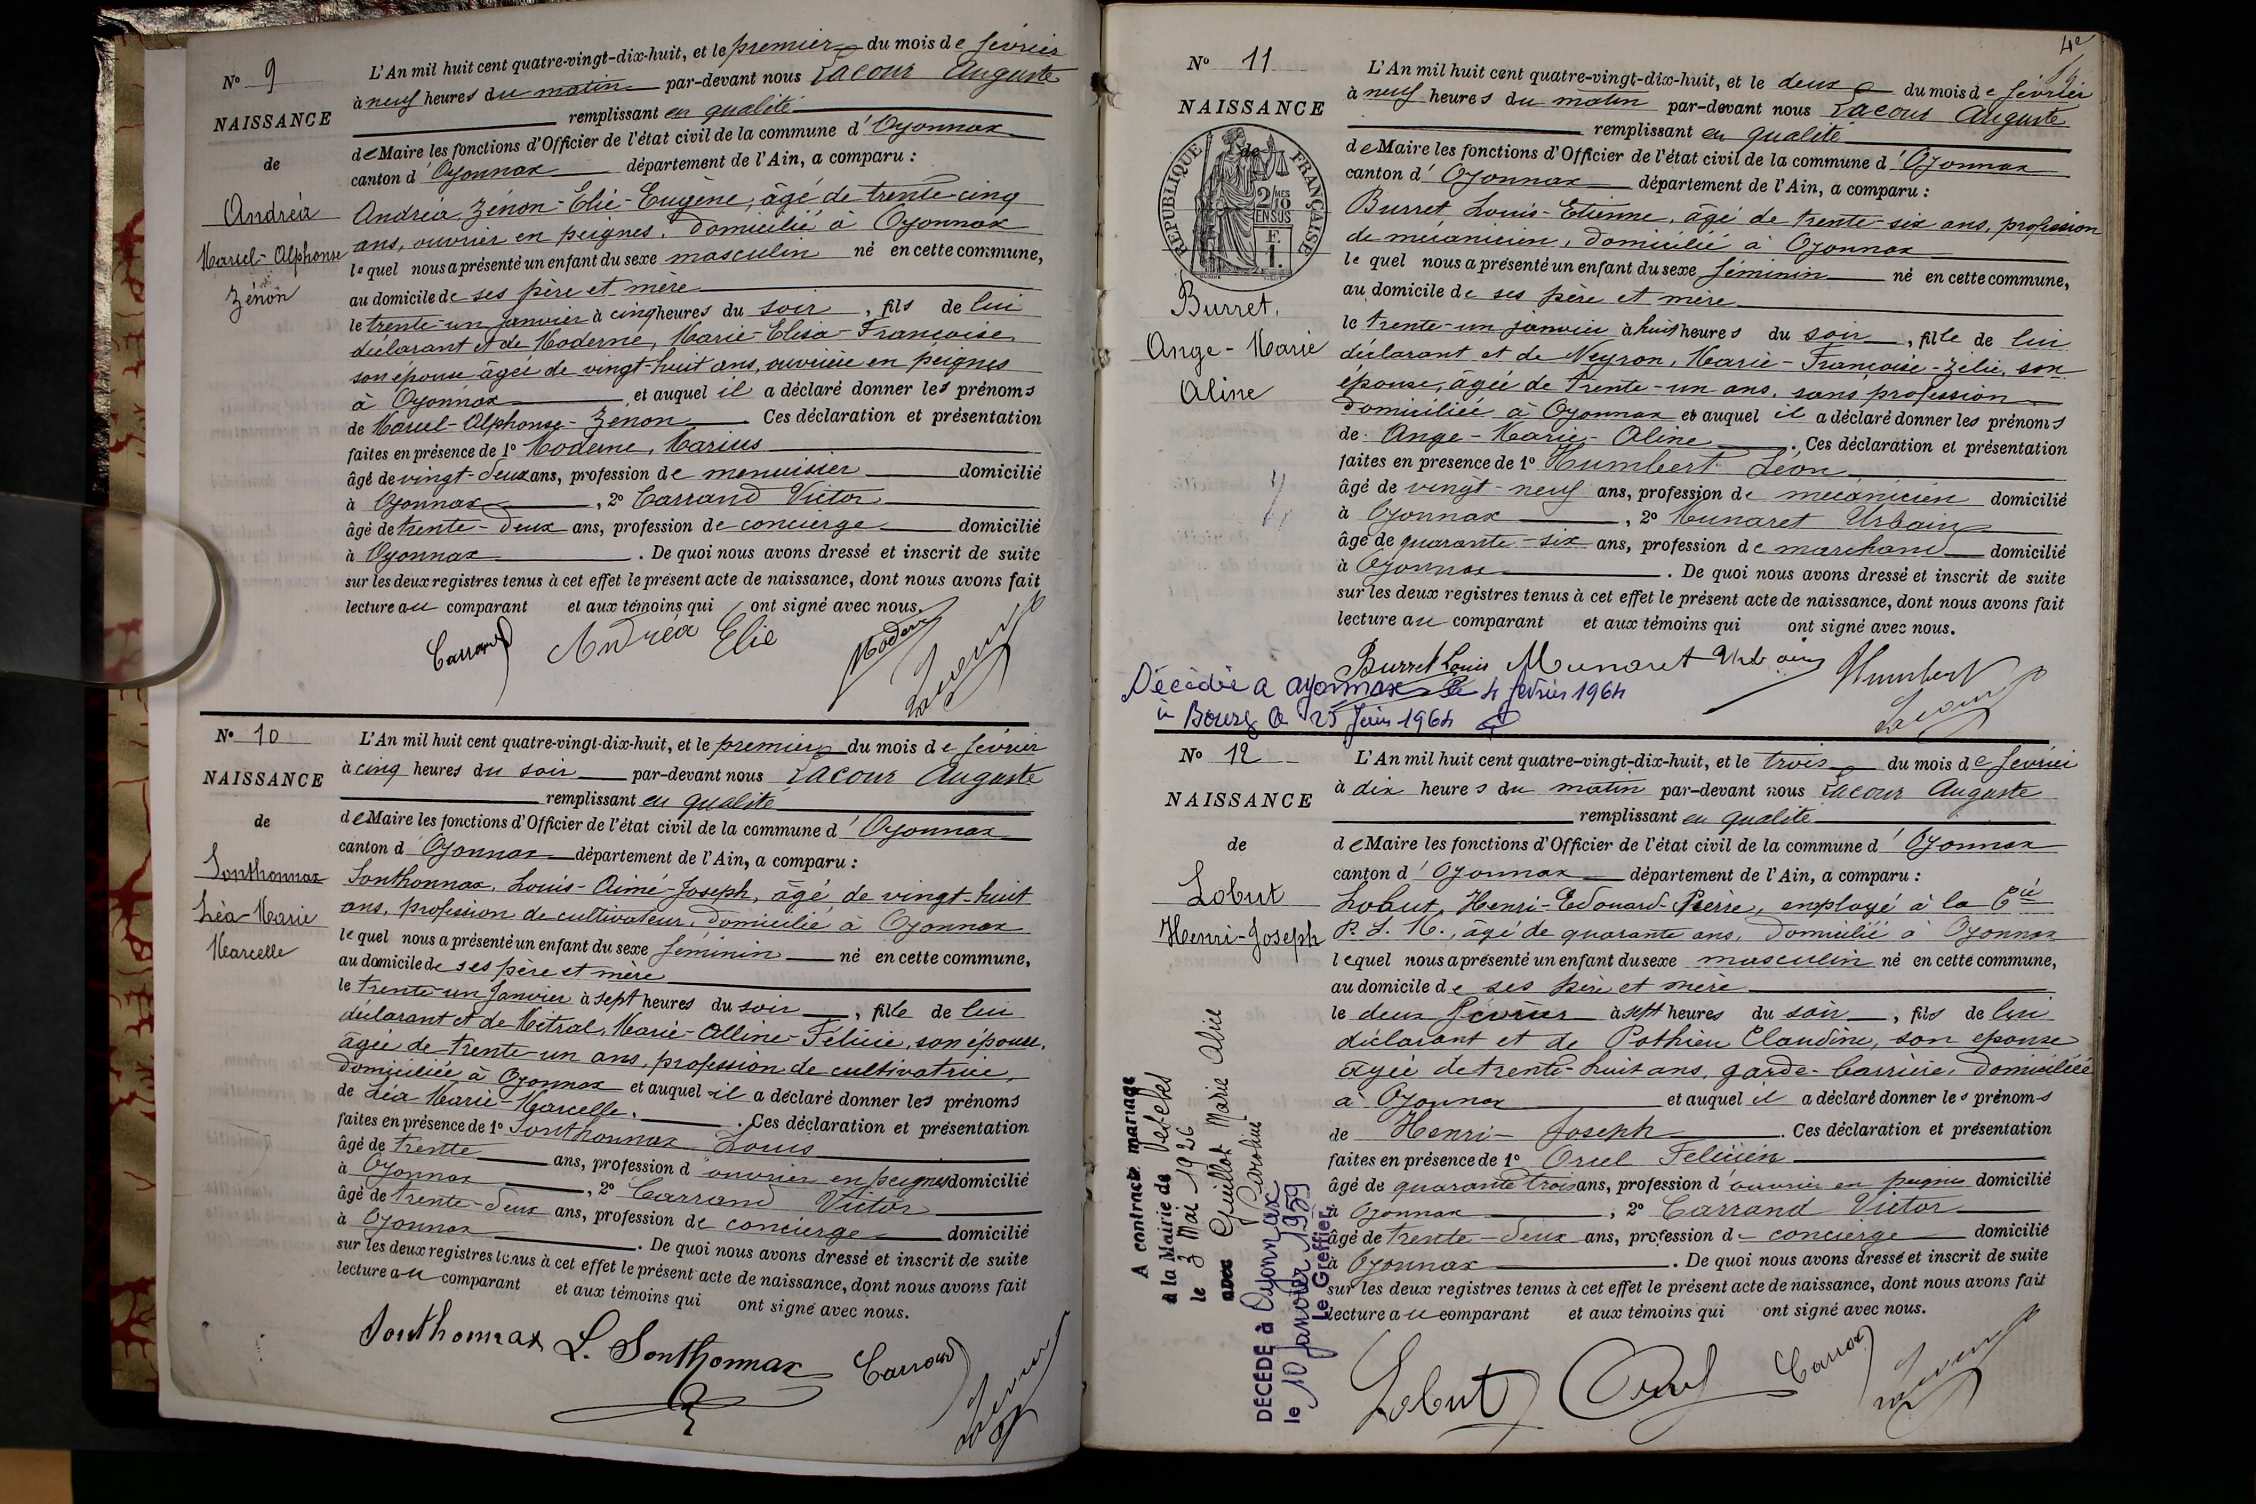 N° 9
NAISSANCE
de
Andréa
Marcel-Alphonse
Zénon
L'An mil huit cent quatre-vingt-dix-huit, et le premier du mois de février
à neuf heures du matin par-devant nous Lacour Auguste
remplissant en qualité
de Maire les fonctions d'Officier de l'état civil de la commune d'Oyonnax
canton d'Oyonnax département de l'Ain, a comparu :
Andréa, Zénon-Elie-Eugène, âgé de trente-cinq
ans, ouvrier en peignes, domicilié à Oyonnax
lequel nous a présenté un enfant du sexe masculin né en cette commune,
au domicile de ses père et mère
le trente-un janvier à cinq heures du soir, fils de lui
déclarant et de Moderne, Marie-Elisa-Françoise,
son épouse âgée de vingt-huit ans, ouvrière en peignes
à Oyonnax et auquel il a déclaré donner les prénoms
de Marcel-Alphonse-Zénon. Ces déclaration et présentation
faites en présence de 1° Moderne, Marius
âgé de vingt-deux ans, profession de menuisier domicilié
à Oyonnax, 2° Carrand Victor
âgé de trente-deux ans, profession de concierge domicilié
à Oyonnax. De quoi nous avons dressé et inscrit de suite
sur les deux registres tenus à cet effet le présent acte de naissance, dont nous avons fait
lecture au comparant et aux témoins qui ont signé avec nous.
Carrand Andréa Elie Moderne Lacour
N° 10
NAISSANCE
de
Sonthonnax
Léa-Marie
Marcelle
L'An mil huit cent quatre-vingt-dix-huit, et le premier du mois de février
à cinq heures du soir par-devant nous Lacour Auguste
remplissant en qualité
de Maire les fonctions d'Officier de l'état civil de la commune d'Oyonnax
canton d'Oyonnax département de l'Ain, a comparu :
Sonthonnax, Louis-Aimé-Joseph, âgé de vingt-huit
ans, profession de cultivateur, domicilié à Oyonnax
lequel nous a présenté un enfant du sexe féminin né en cette commune,
au domicile de ses père et mère
le trente-un Janvier à sept heures du soir, fille de lui
déclarant et de Mitral, Marie-Alline-Félicie, son épouse,
âgée de trente-un ans, profession de cultivatrice,
domiciliée à Oyonnax et auquel il a déclaré donner les prénoms
de Léa Marie-Marcelle. Ces déclaration et présentation
faites en présence de 1° Sonthonnax Louis
âgé de trente ans, profession d'ouvrier en peignes domicilié
à Oyonnax, 2° Carrand Victor
âgé de trente-deux ans, profession de concierge domicilié
à Oyonnax. De quoi nous avons dressé et inscrit de suite
sur les deux registres tenus à cet effet le présent acte de naissance, dont nous avons fait
lecture au comparant et aux témoins qui ont signé avec nous.
Sonthonnax L. Sonthonnax Carrand Lacour
4e
N° 11
NAISSANCE
de
RÉPUBLIQUE FRANÇAISE
2/10 MES
EN SUS
F.
1.
Burret,
Ange-Marie
Aline
L'An mil huit cent quatre-vingt-dix-huit, et le deux du mois de février
à neuf heures du matin par-devant nous Lacour Auguste
remplissant en qualité
de Maire les fonctions d'Officier de l'état civil de la commune d'Oyonnax
canton d'Oyonnax département de l'Ain, a comparu :
Burret, Louis-Etienne, âgé de trente-six ans, profession
de mécanicien, domicilié à Oyonnax
lequel nous a présenté un enfant du sexe féminin né en cette commune,
au domicile de ses père et mère
le trente-un janvier à huit heures du soir, fille de lui
déclarant et de Neyron, Marie-Françoise-Zélie, son
épouse, âgée de trente-un ans, sans profession
domiciliée à Oyonnax et auquel il a déclaré donner les prénoms
de Ange-Marie-Aline. Ces déclaration et présentation
faites en présence de 1° Humbert Léon
âgé de vingt-neuf ans, profession de mécanicien domicilié
à Oyonnax, 2° Munaret Urbain
âgé de quarante-six ans, profession de marchand domicilié
à Oyonnax. De quoi nous avons dressé et inscrit de suite
sur les deux registres tenus à cet effet le présent acte de naissance, dont nous avons fait
lecture au comparant et aux témoins qui ont signé avec nous.
Burret Louis Munaret Urbain Humbert Lacour
Décédée à Oyonnax le 4 février 1964
à Bourg le 25 Juin 1964
N° 12
NAISSANCE
de
Lobut
Henri-Joseph
A contracté mariage
à la Mairie de
le 3 Mai 1926
avec Guillot Marie Alice
DÉCÉDÉ à Oyonnax
le 10 Janvier 1959
Le Greffier,
L'An mil huit cent quatre-vingt-dix-huit, et le trois du mois de février
à dix heures du matin par-devant nous Lacour Auguste
remplissant en qualité
de Maire les fonctions d'Officier de l'état civil de la commune d'Oyonnax
canton d'Oyonnax département de l'Ain, a comparu :
Lobut, Henri-Edouard-Pierre, employé à la Cie
P. L. M., âgé de quarante ans, domicilié à Oyonnax
lequel nous a présenté un enfant du sexe masculin né en cette commune,
au domicile de ses père et mère
le deux février à sept heures du soir, fils de lui
déclarant et de Pothieu Claudine, son épouse
âgée de trente-huit ans, garde-barrière, domiciliée
à Oyonnax et auquel il a déclaré donner les prénoms
de Henri-Joseph. Ces déclaration et présentation
faites en présence de 1° Oriel Félicien
âgé de quarante trois ans, profession d'ouvrier en peignes domicilié
à Oyonnax, 2° Carrand Victor
âgé de trente-deux ans, profession de concierge domicilié
à Oyonnax. De quoi nous avons dressé et inscrit de suite
sur les deux registres tenus à cet effet le présent acte de naissance, dont nous avons fait
lecture au comparant et aux témoins qui ont signé avec nous.
Lobut Oriel Carrand Lacour